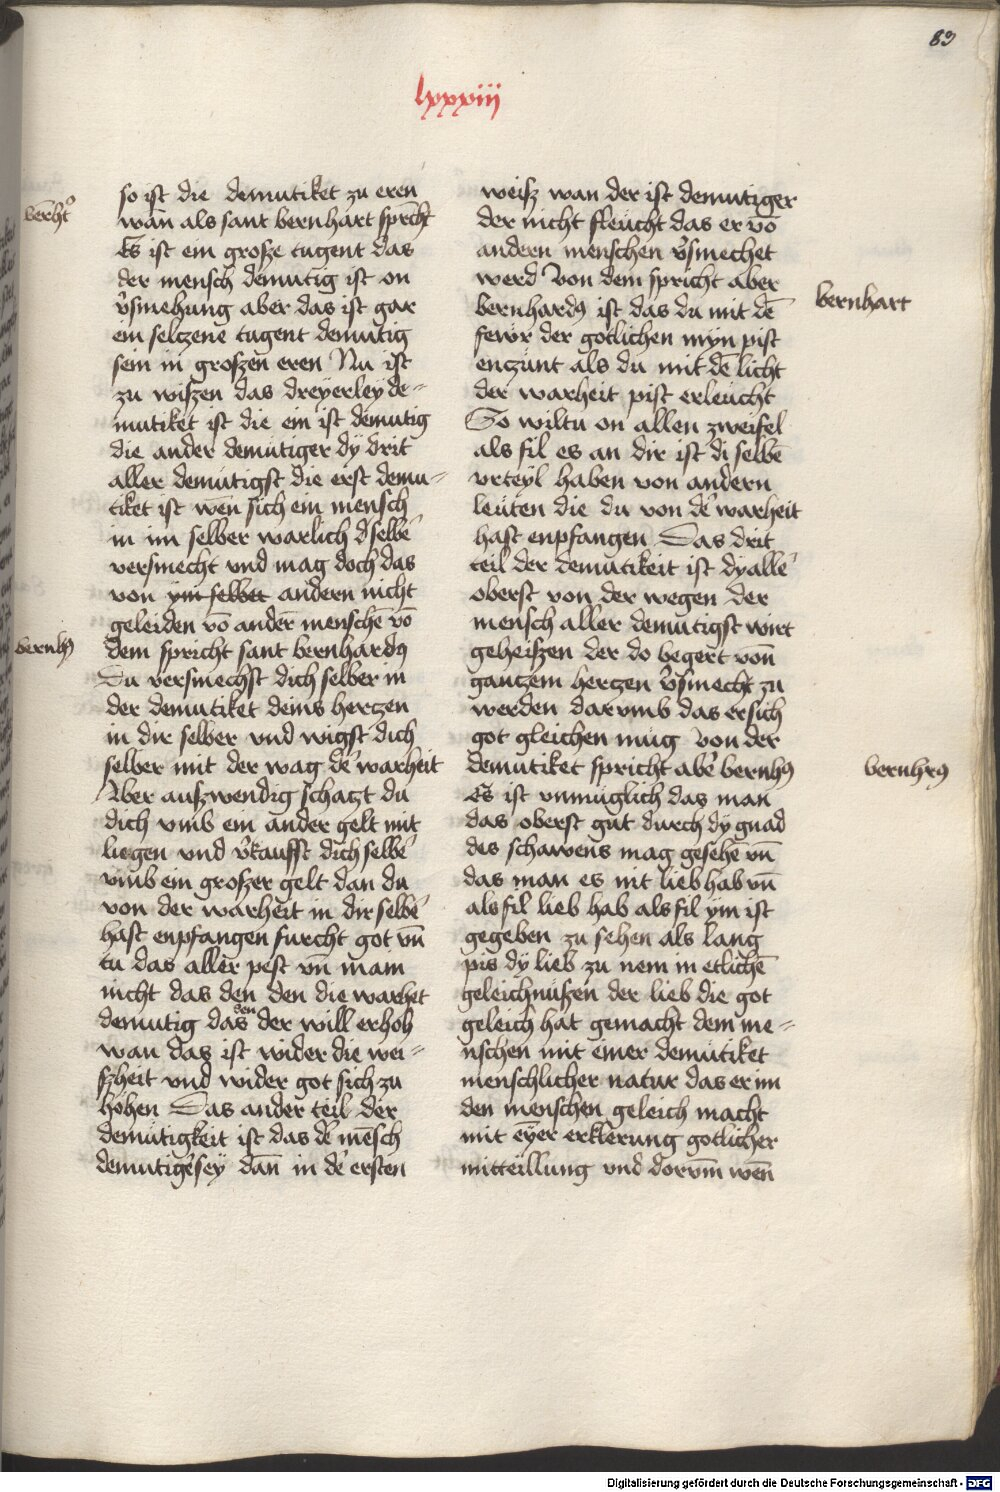 83
lxxxiij
so ist die demutiket zu eren
wān als sant bernhart spricht
Es ist ein grosze tugent das
der mensch demutig ist on
v̾smehung aber das ist gar
ein seltzene tugent demutig
sein in groszen eren Nu ist
zu wiszen das dreyerley de=
mutiket ist die ein ist demutig
die ander demutiger dy drit
aller demutigst die erst demu=
tiket ist wēn sich ein mensch
in im selber warlich d̾selbē
versmecht vnd mag doch das
von ym selber andern nicht
geleiden vō andeꝛ̄ menschē vō
dem spricht sant bernhardꝰ
Du versmechst dich selber in
der demutiket deins hertzen
in dir selber vnd wigst dich
selber mit der wag de̾ warheit
Aber auszwendig schatzt du
dich vmb ein ander gelt mit
liegen vnd v̾kaufst dich selbe̾
vmb ein groszer gelt dan du
von der warheit in dir selbe̾
hast enpfangen furcht got vn̄
tu das aller pest vn̄ mam
nicht das den den die warhet
demutig das den der will erhoh
wan das ist wider die wei=
szheit vnd wider got sich zu
hohen Das ander teil der
demutigkeit ist das de̾ mēsch
demutige̾ sey dan̄ in de̾ ersten
weisz wan der ist demutiger
der nicht fleucht das er vō
andern menschen v̾smechet
werd Von dem spricht aber
bernhardꝰ ist das du mit dē
fewr der gotlichen myn pist
enczunt als du mit dē licht
der warheit pist erleucht
So wiltu on allen zweifel
als fil es an dir ist di selbē
vrteyl haben von andern
leuten die du von de̾ warheit
hast enpfangen Das drit
teil der demutikeit ist dy alle̾
oberst von der wegen der
mensch aller demutigst wirt
geheiszen der do begert von̄
gantzem hertzen v̾smecht zu
werden darvmb das er sich
got gleichen mug Von der
demutiket spricht abe̾ bernhꝰ
es ist vnmuglich das man
das oberst gut durch dy gnad
des schawens mag gesehē vn̄
das man es nit lieb hab vn̄
als fil lieb hab als fil ym ist
gegeben zu sehen als lang
pis dy lieb zu nem in etlichē
geleichnuszen der lieb die got
geleich hat gemacht dem me=
nschen mit einer demutiket
menschlicher natur das er im
den menschen geleich macht
mit eyner erklerung gotlicher
mitteillung vnd dorvm̄ wen̄
bernhꝰ
bernhart
bernhrꝰ
Digitalisierung gefördert durch die Deutsche Forschungsgemeinschaft - DFG